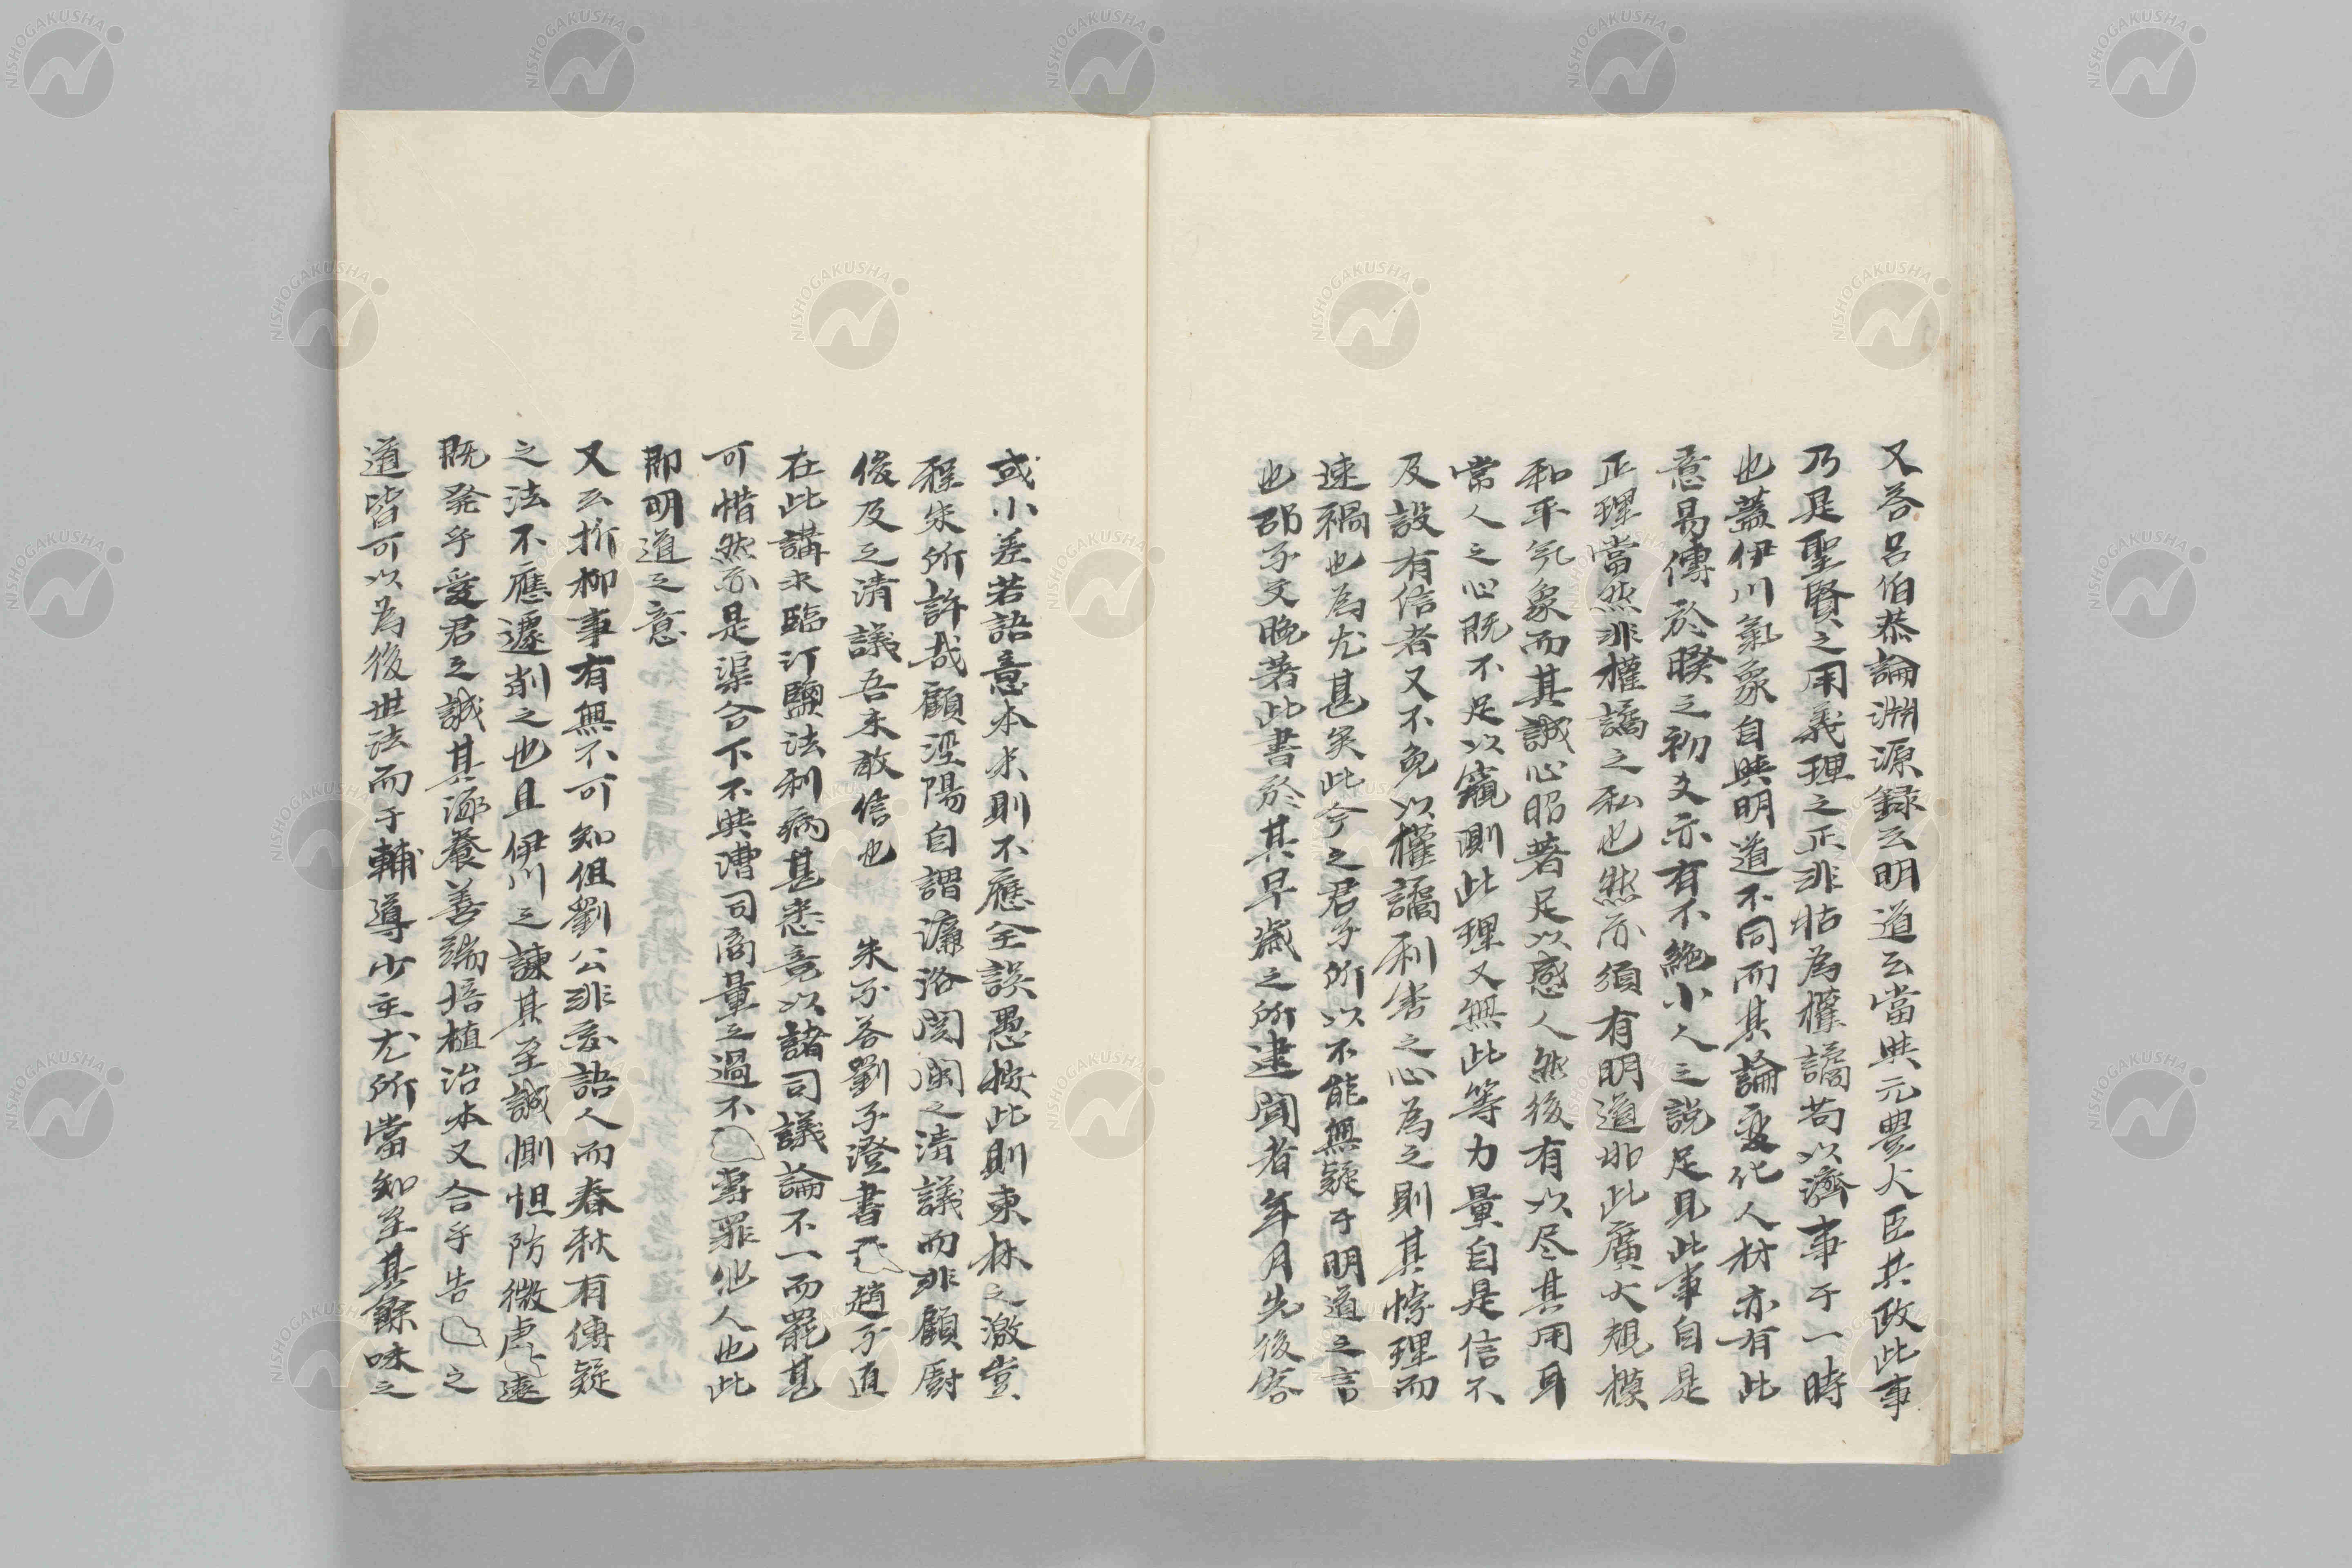 又答呂伯恭論淵源録云明道云當與元豊大臣共政此事
乃是聖賢之用義理之正非姑為權譎苟以濟事于一時
也蓋伊川氣象自與明道不同而其論変化人材亦有此
意易傳於睽之初爻亦有不絶小人之説足見此事自是
正理當然非權譎之私也然亦須有明道如此廣大規模
和平気象而其誠心昭著足以感人然後有以尽其用耳
常人之心既不足以窺測此理又無此等力量自是信不
及設有信者又不免以權譎利害之心為之則其悖理而
速禍也為尤甚矣此今之君子所以不能無疑于明道之言
也邵子文晩著此書於其早歳之所逮聞者年月先後容
或小差若語意本末則不應全誤愚按此則東林之激豈
程朱所許哉顧涇陽自謂濂洛関閩之清議而非顧厨
俊及之清議吾未敢信也　朱子答劉子澄書 趙子直
在此講求臨汀鹽法利病甚悉竟以諸司議論不一而罷甚
可惜然亦是渠合下不與漕司商量之過不 専罪他人也此
即明道之意
又云折柳事有無不可知但劉公非妄語人而春秋有傳疑
之法不應遽削之也且伊川之諫其至誠惻怛防微慮遠
既発乎愛君之誠其涵養善端培植治本又合乎告 之
道皆可以為後世法而于輔導少主尤所當知至其餘味之